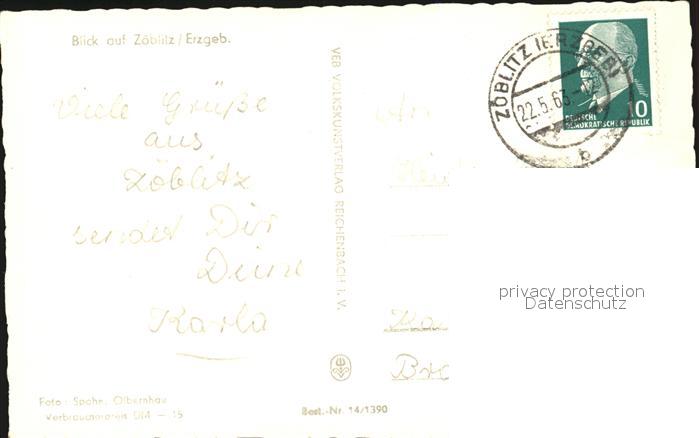 Blick auf Zöblitz / Erzgeb.
Viele Grüße
aus
Zöblitz
sendet Dir
Deine
Karla
Foto: Spohn, Olbernhau
Verbraucherpreis DM — 15
VEB VOLKSKUNSTVERLAG REICHENBACH I. V.
Best.-Nr. 14/1390
ZÖBLITZ (ERZGEB)
22.5.63
b
10
DEUTSCHE
DEMOKRATISCHE REPUBLIK
An
privacy protection
Datenschutz